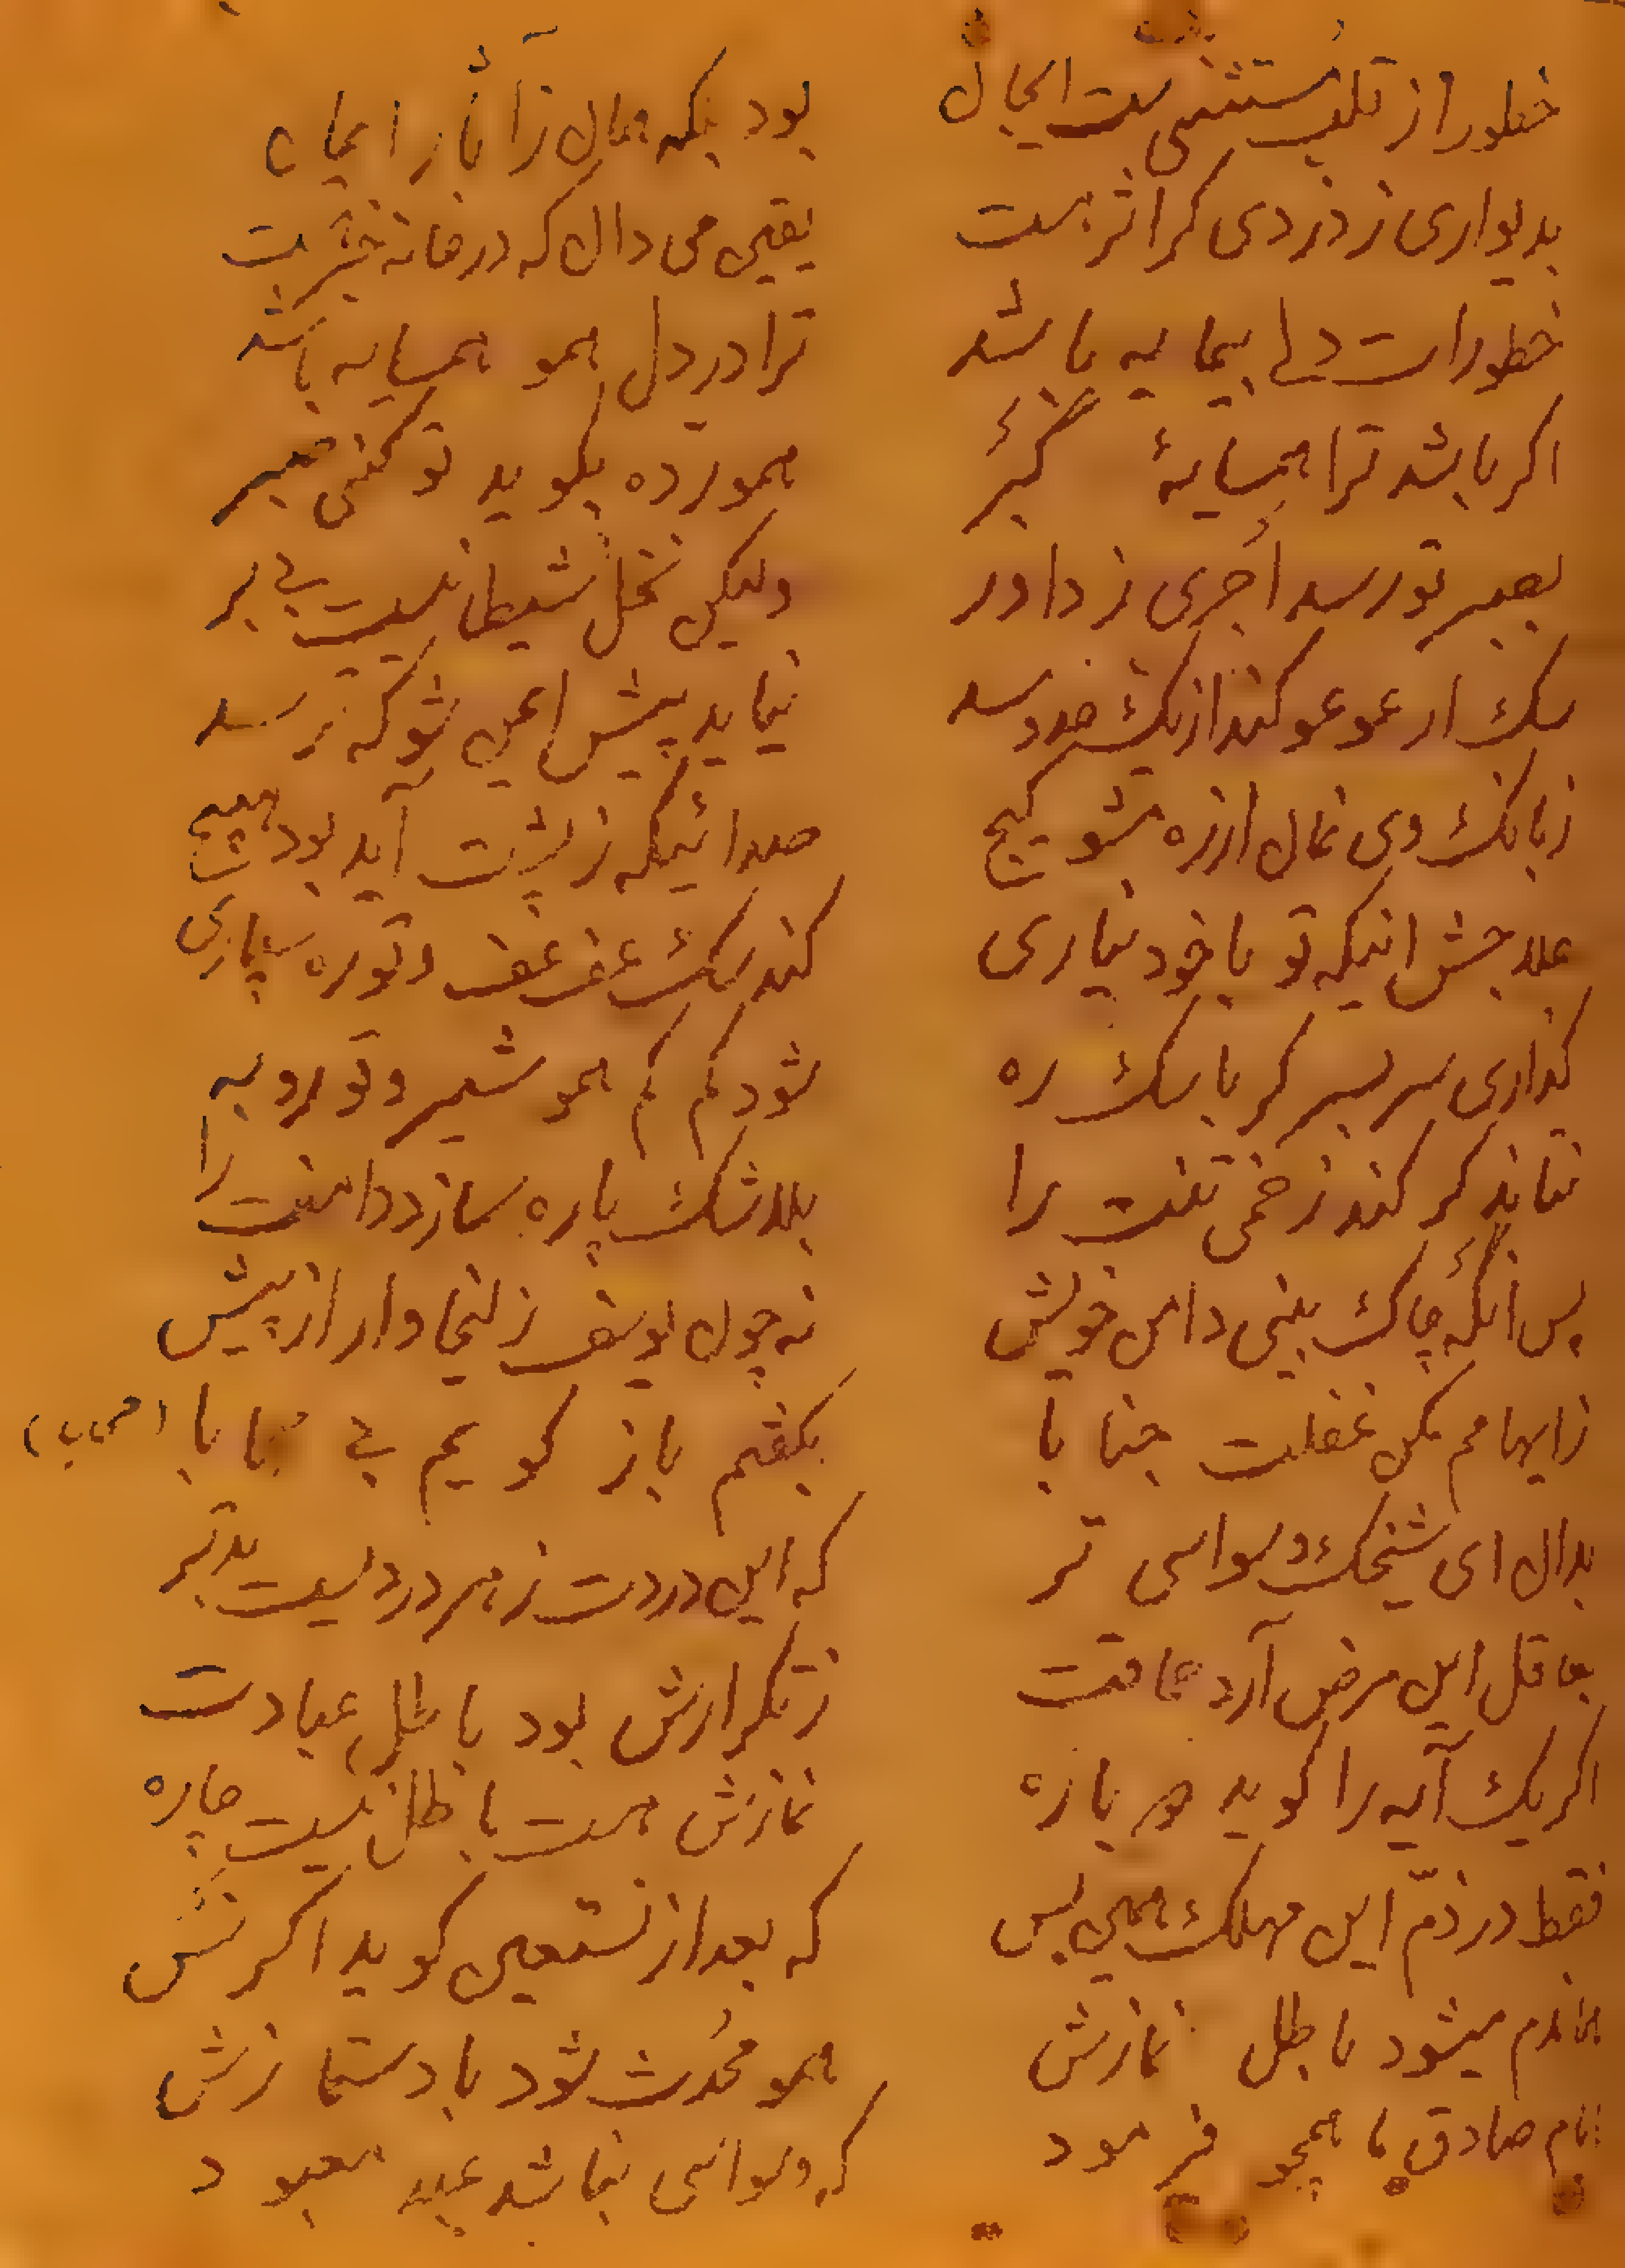 خطور از قلب مستثنی ست ایجان
بود بلکه همان ز آثار ایمان
بدیواری ز دزدی گر اثر هست
یقین می دان که در خانه خبر هست
خطورات دلی پیمایه باشد
ترا در دل همو همسایه باشد
اگر باشد ترا همسایهٔ گبر
همو رده بگوید تو کنی صبر
بصبر تو رسد اجری ز داور
ولیکن نخل شیطان نیست بی بر
سک ار عوعو کند از یک صد و سد
نیاید پیش ایمن شو که نرسد
ز بانک وی نمان از ره مشو گیج
صدائیکه ز پشت آید بود هیچ
علاجش اینکه تو با خود نیاری
کند سک عف عف و تو ره سپاری
گذاری سر بسر گر با سک ره
شود کم کم همو شیر و تو روبه
نتاند گر کند زخمی تنت را
بلاشک پاره سازد دامنت را
پس آنگه چاک بینی دامن خویش
نه چون یوسف زلیخا وار از پیش
ز ایهامم مکن غفلت جنابا
بگفتم باز گویم بی محابا
بدان ای شیخک وسواسی تر
که این دردت ز هر دردیست بدتر
بعاقل این مرض آرد حماقت
ز تکرارش بود باطل عبادت
اگر یک آیه را گوید دو باره
نمازش هست باطل نیست چاره
فقط در ذمّ این مهلک همین بس
که بعد از نستعین گوید اگر نس
هماندم میشود باطل نمازش
همو محدث شود با دستمازش
امام صادق ما همچو فرمود
که وسواسی نباشد عبد معبود